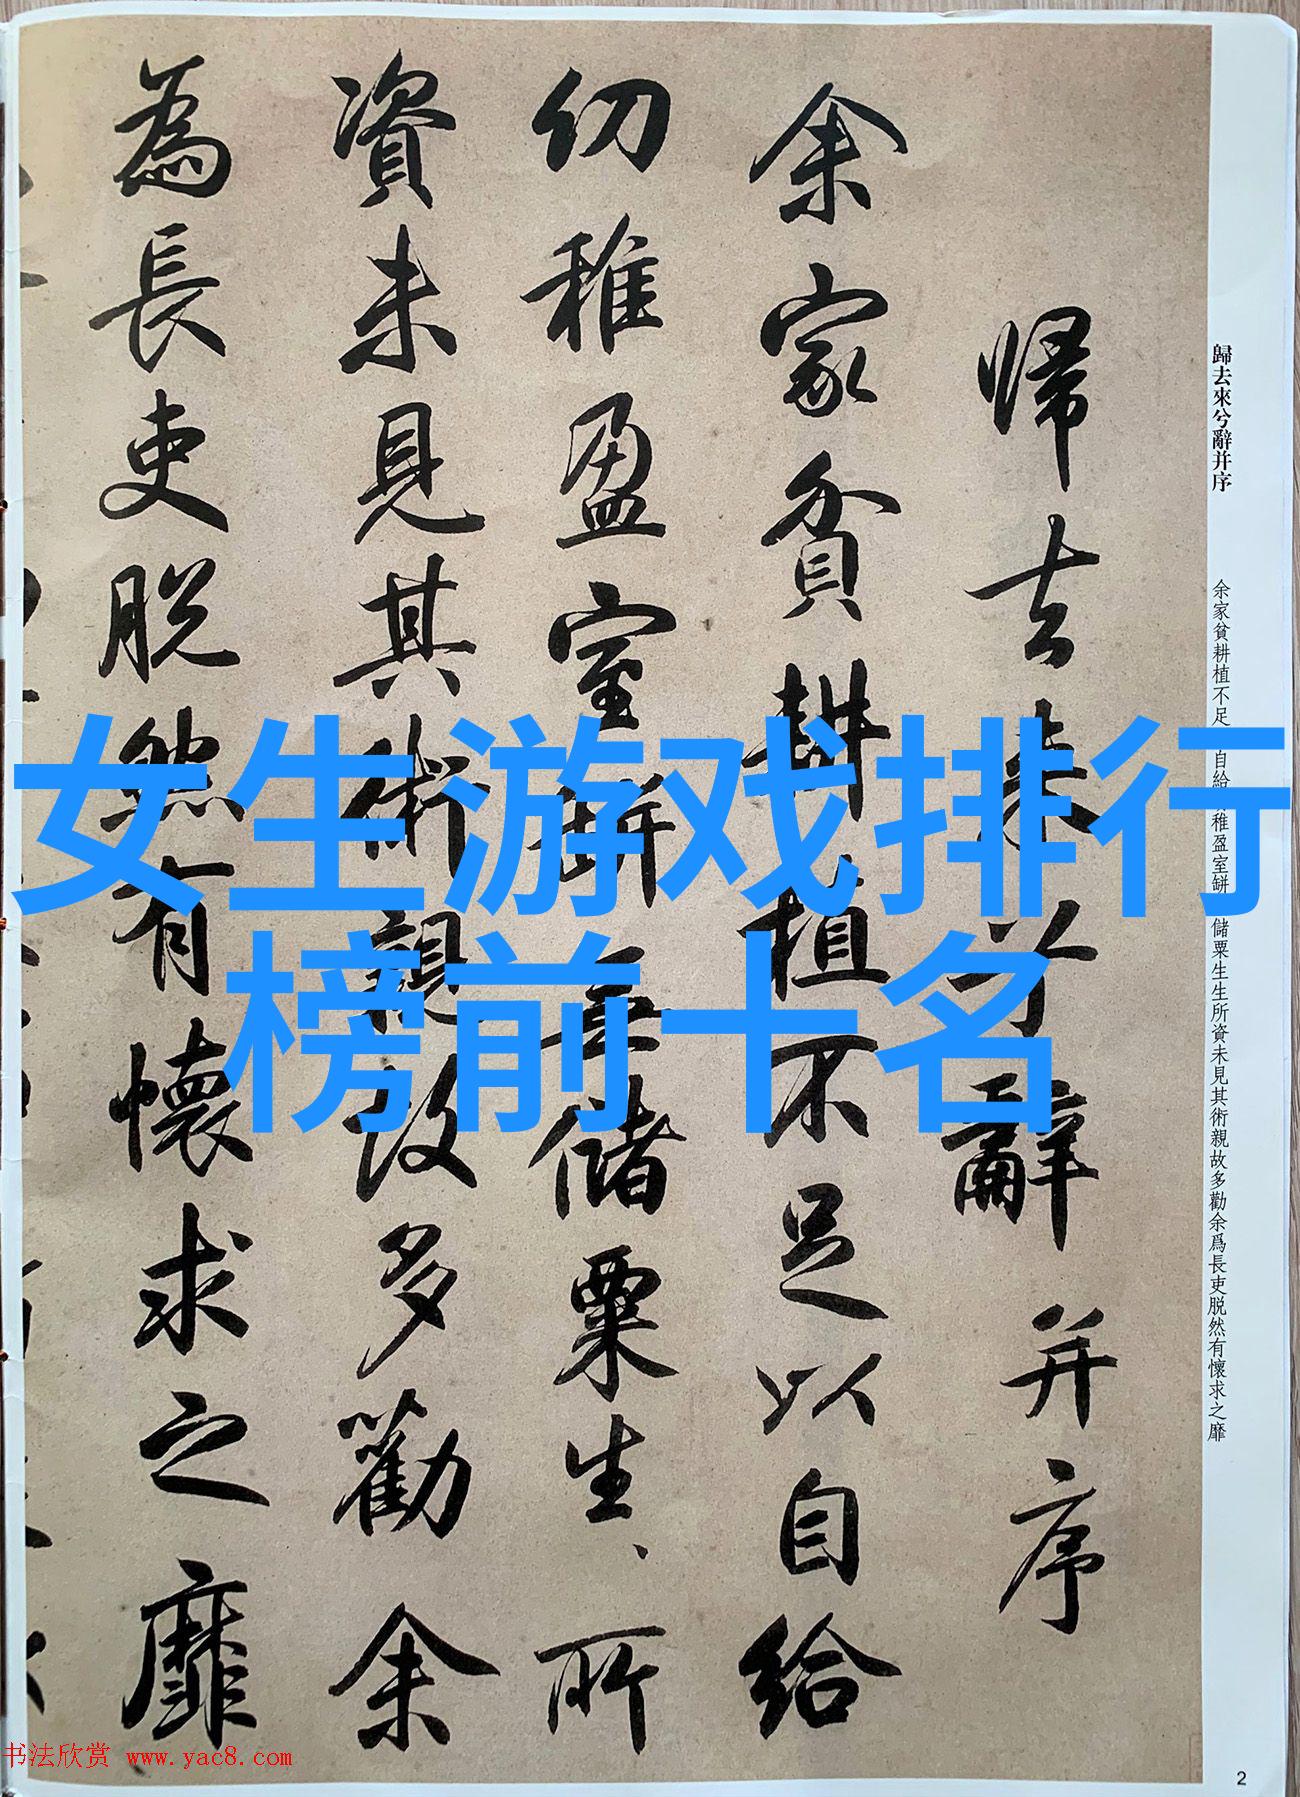 歸去來兮辭并序
余家貧耕植不足
自給
稚盈室缾
儲粟生生所資未見其術親故多勸余爲長吏脱然有懷求之靡
帰去来兮辭并序
余家貧耕植不足以自給
幼稚盈室缾無儲粟生、所
資未見其術親故多勸余
為長吏脱然有懷求之靡
女生游戏排行
榜前十名
书法欣赏 www.yac8.com
2